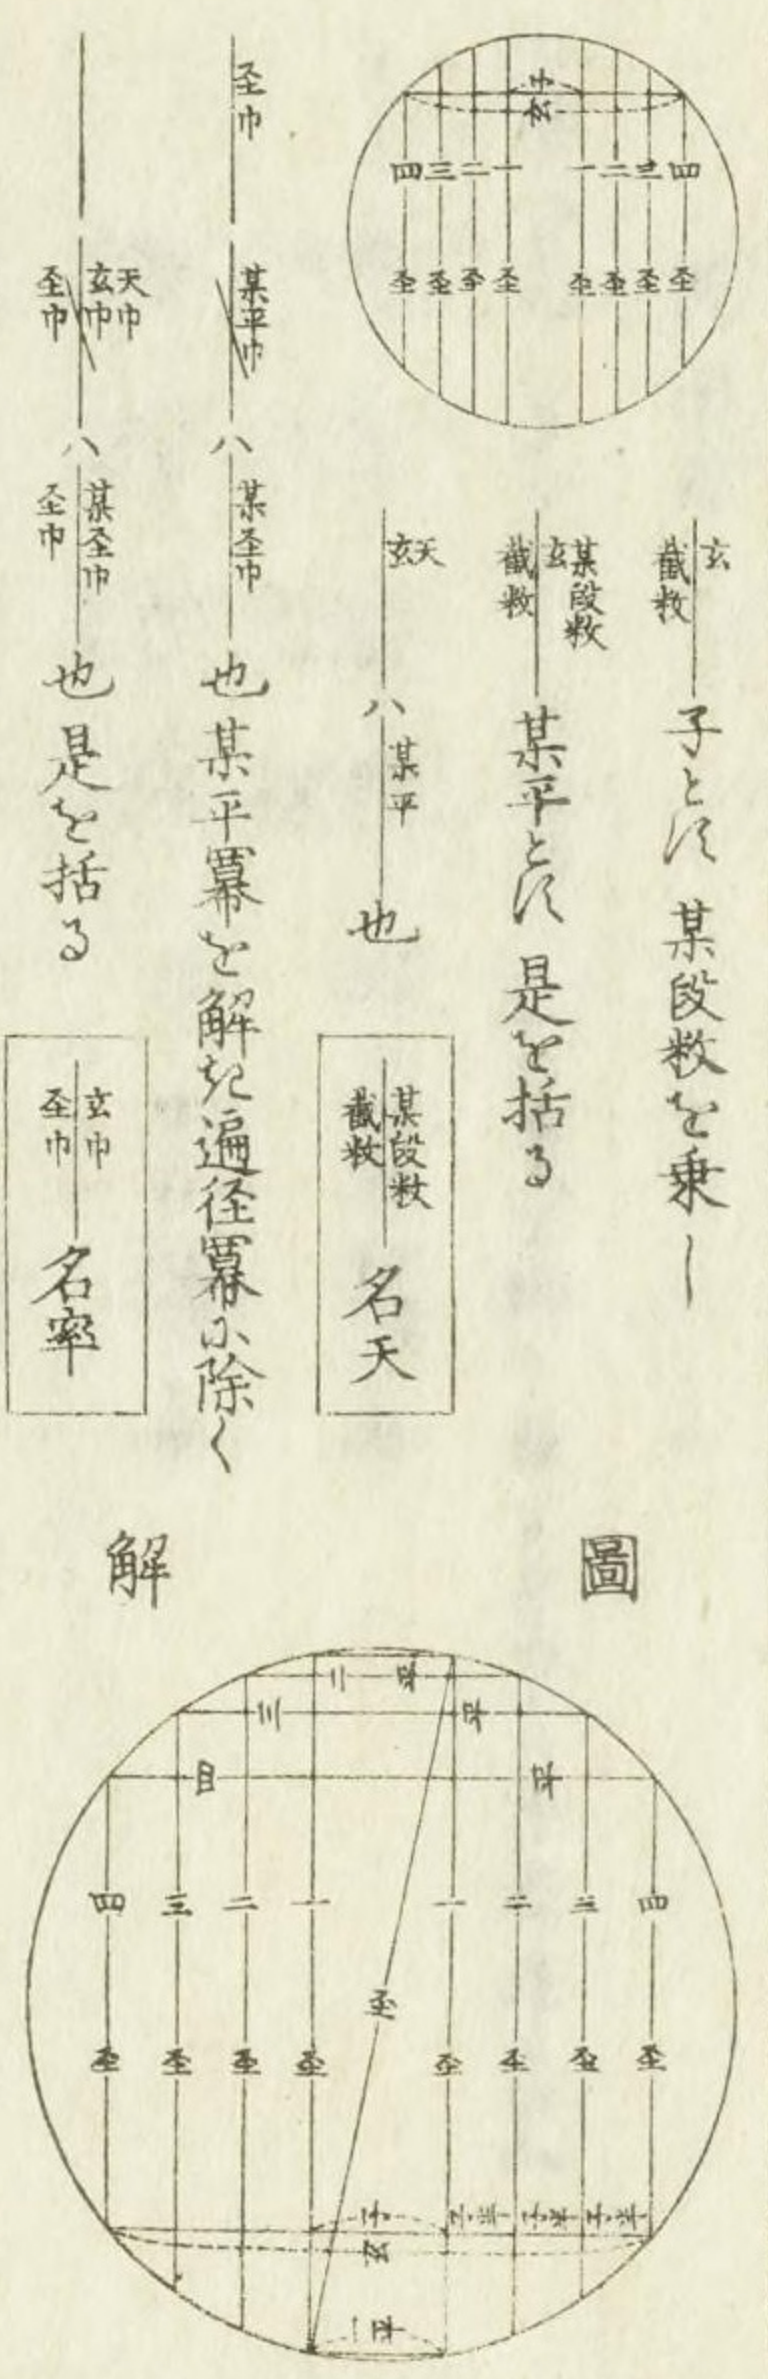 圖
子
玄
四三二一 一二三四
圣圣圣圣 圣圣圣圣
玄
截数
子とス 某段数を乗し
玄某段数
截数
某平とス 是を括る
玄天
八
某平
也
某段数
截数
名天
圣巾
某平巾
八
某圣巾
也 某平冪を解き遍径冪ニ除く
玄巾天巾
圣巾
八
某圣巾
圣巾
也 是を括る
玄巾
圣巾
名率
解
二 平
三 平
四 平
四 三 二 一 一 二 三 四
圣
圣 圣 圣 圣 圣 圣 圣 圣
子 子半 子半 子半
玄
一平